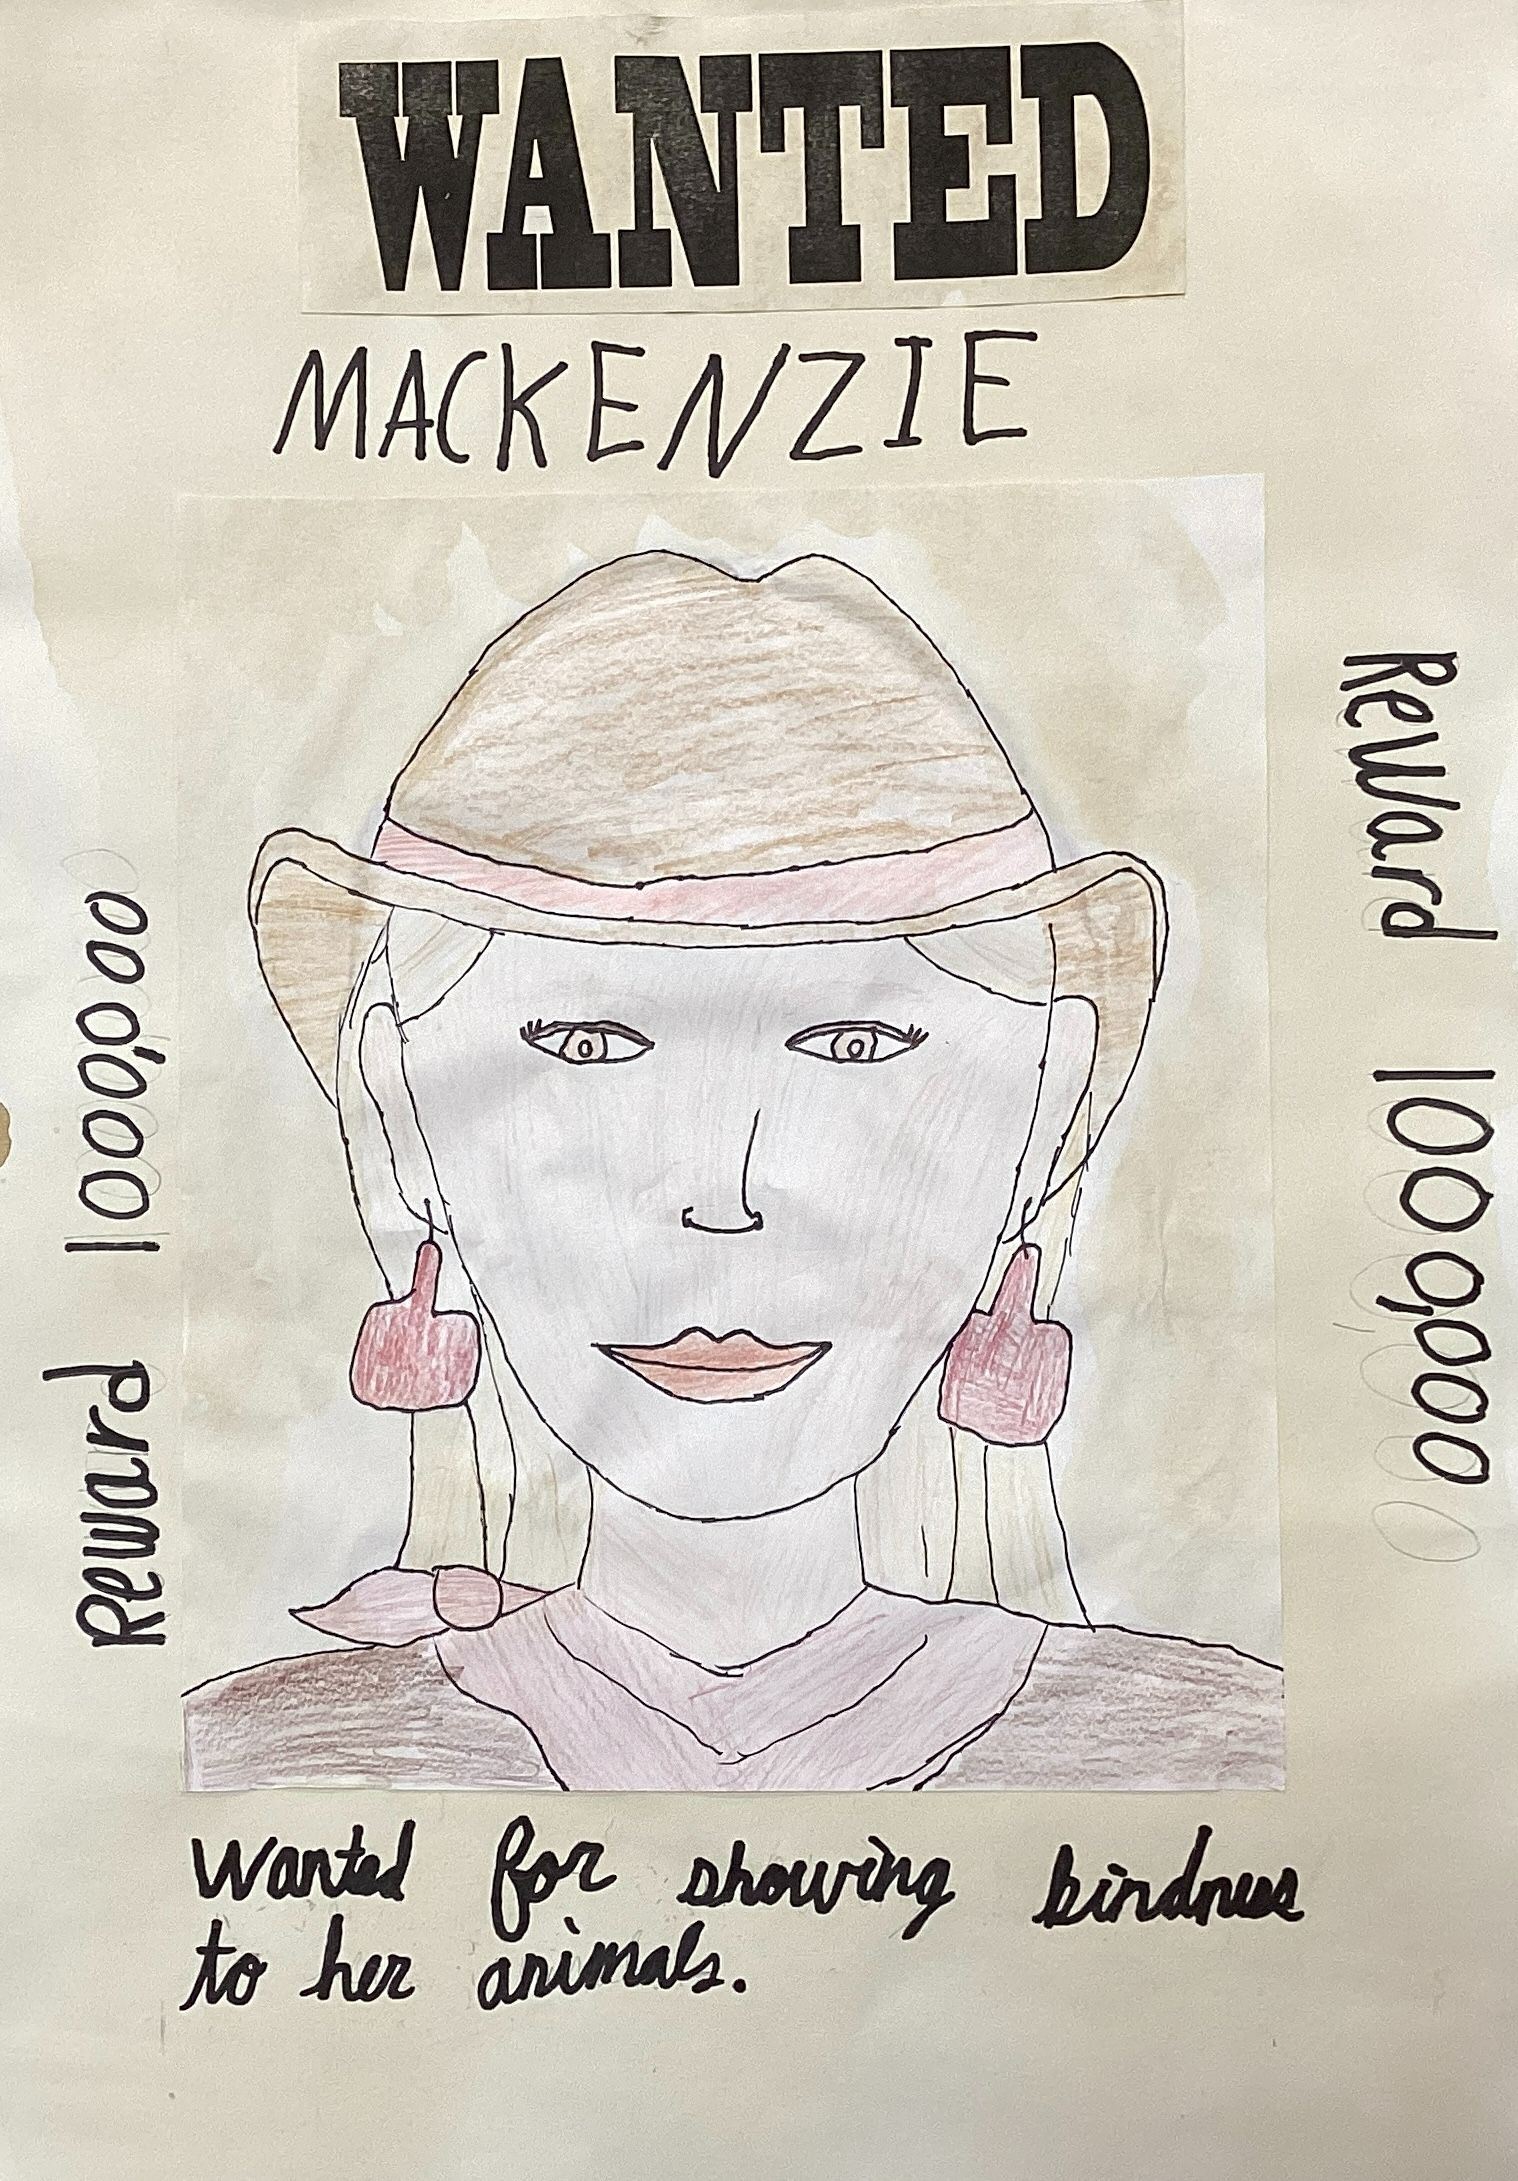 WANTED
MACKENZIE
Reward 1000,000
ReWard 1000,000
Wanted for showing kindness
to her animals.